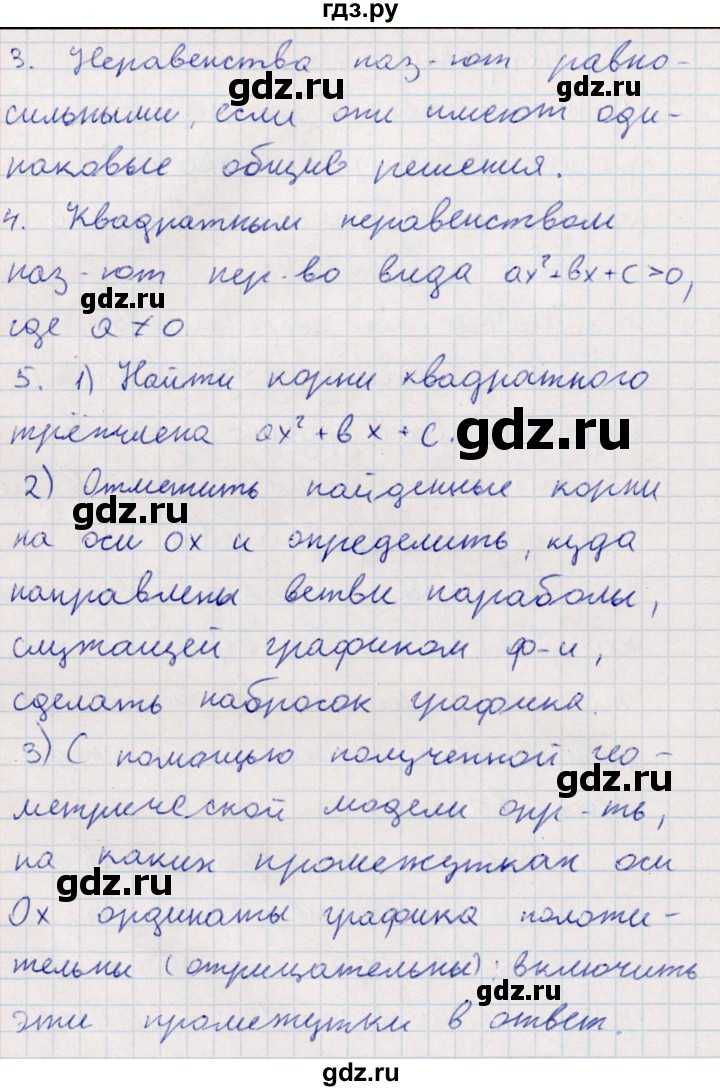 гдз.ру
3. Неравенства наз-ют равно-
сильными, если они имеют оди-
наковые общие решения.
4. Квадратным неравенством
наз-ют нер-во вида ax²+bx+c>0,
где a≠0
5. 1) Найти корни квадратного
трёхчлена ax²+bx+c.
2) Отметить найденные корни
на оси Ox и определить, куда
направлены ветви параболы,
служащей графиком ф-и,
сделать набросок графика.
3) С помощью полученной гео-
метрической модели опр-ть,
на каких промежутках оси
Ox ординаты графика положи-
тельны (отрицательны); включить
эти промежутки в ответ.
gdz.ru
gdz.ru
gdz.ru
gdz.ru
gdz.ru
gdz.ru
gdz.ru
gdz.ru
gdz.ru